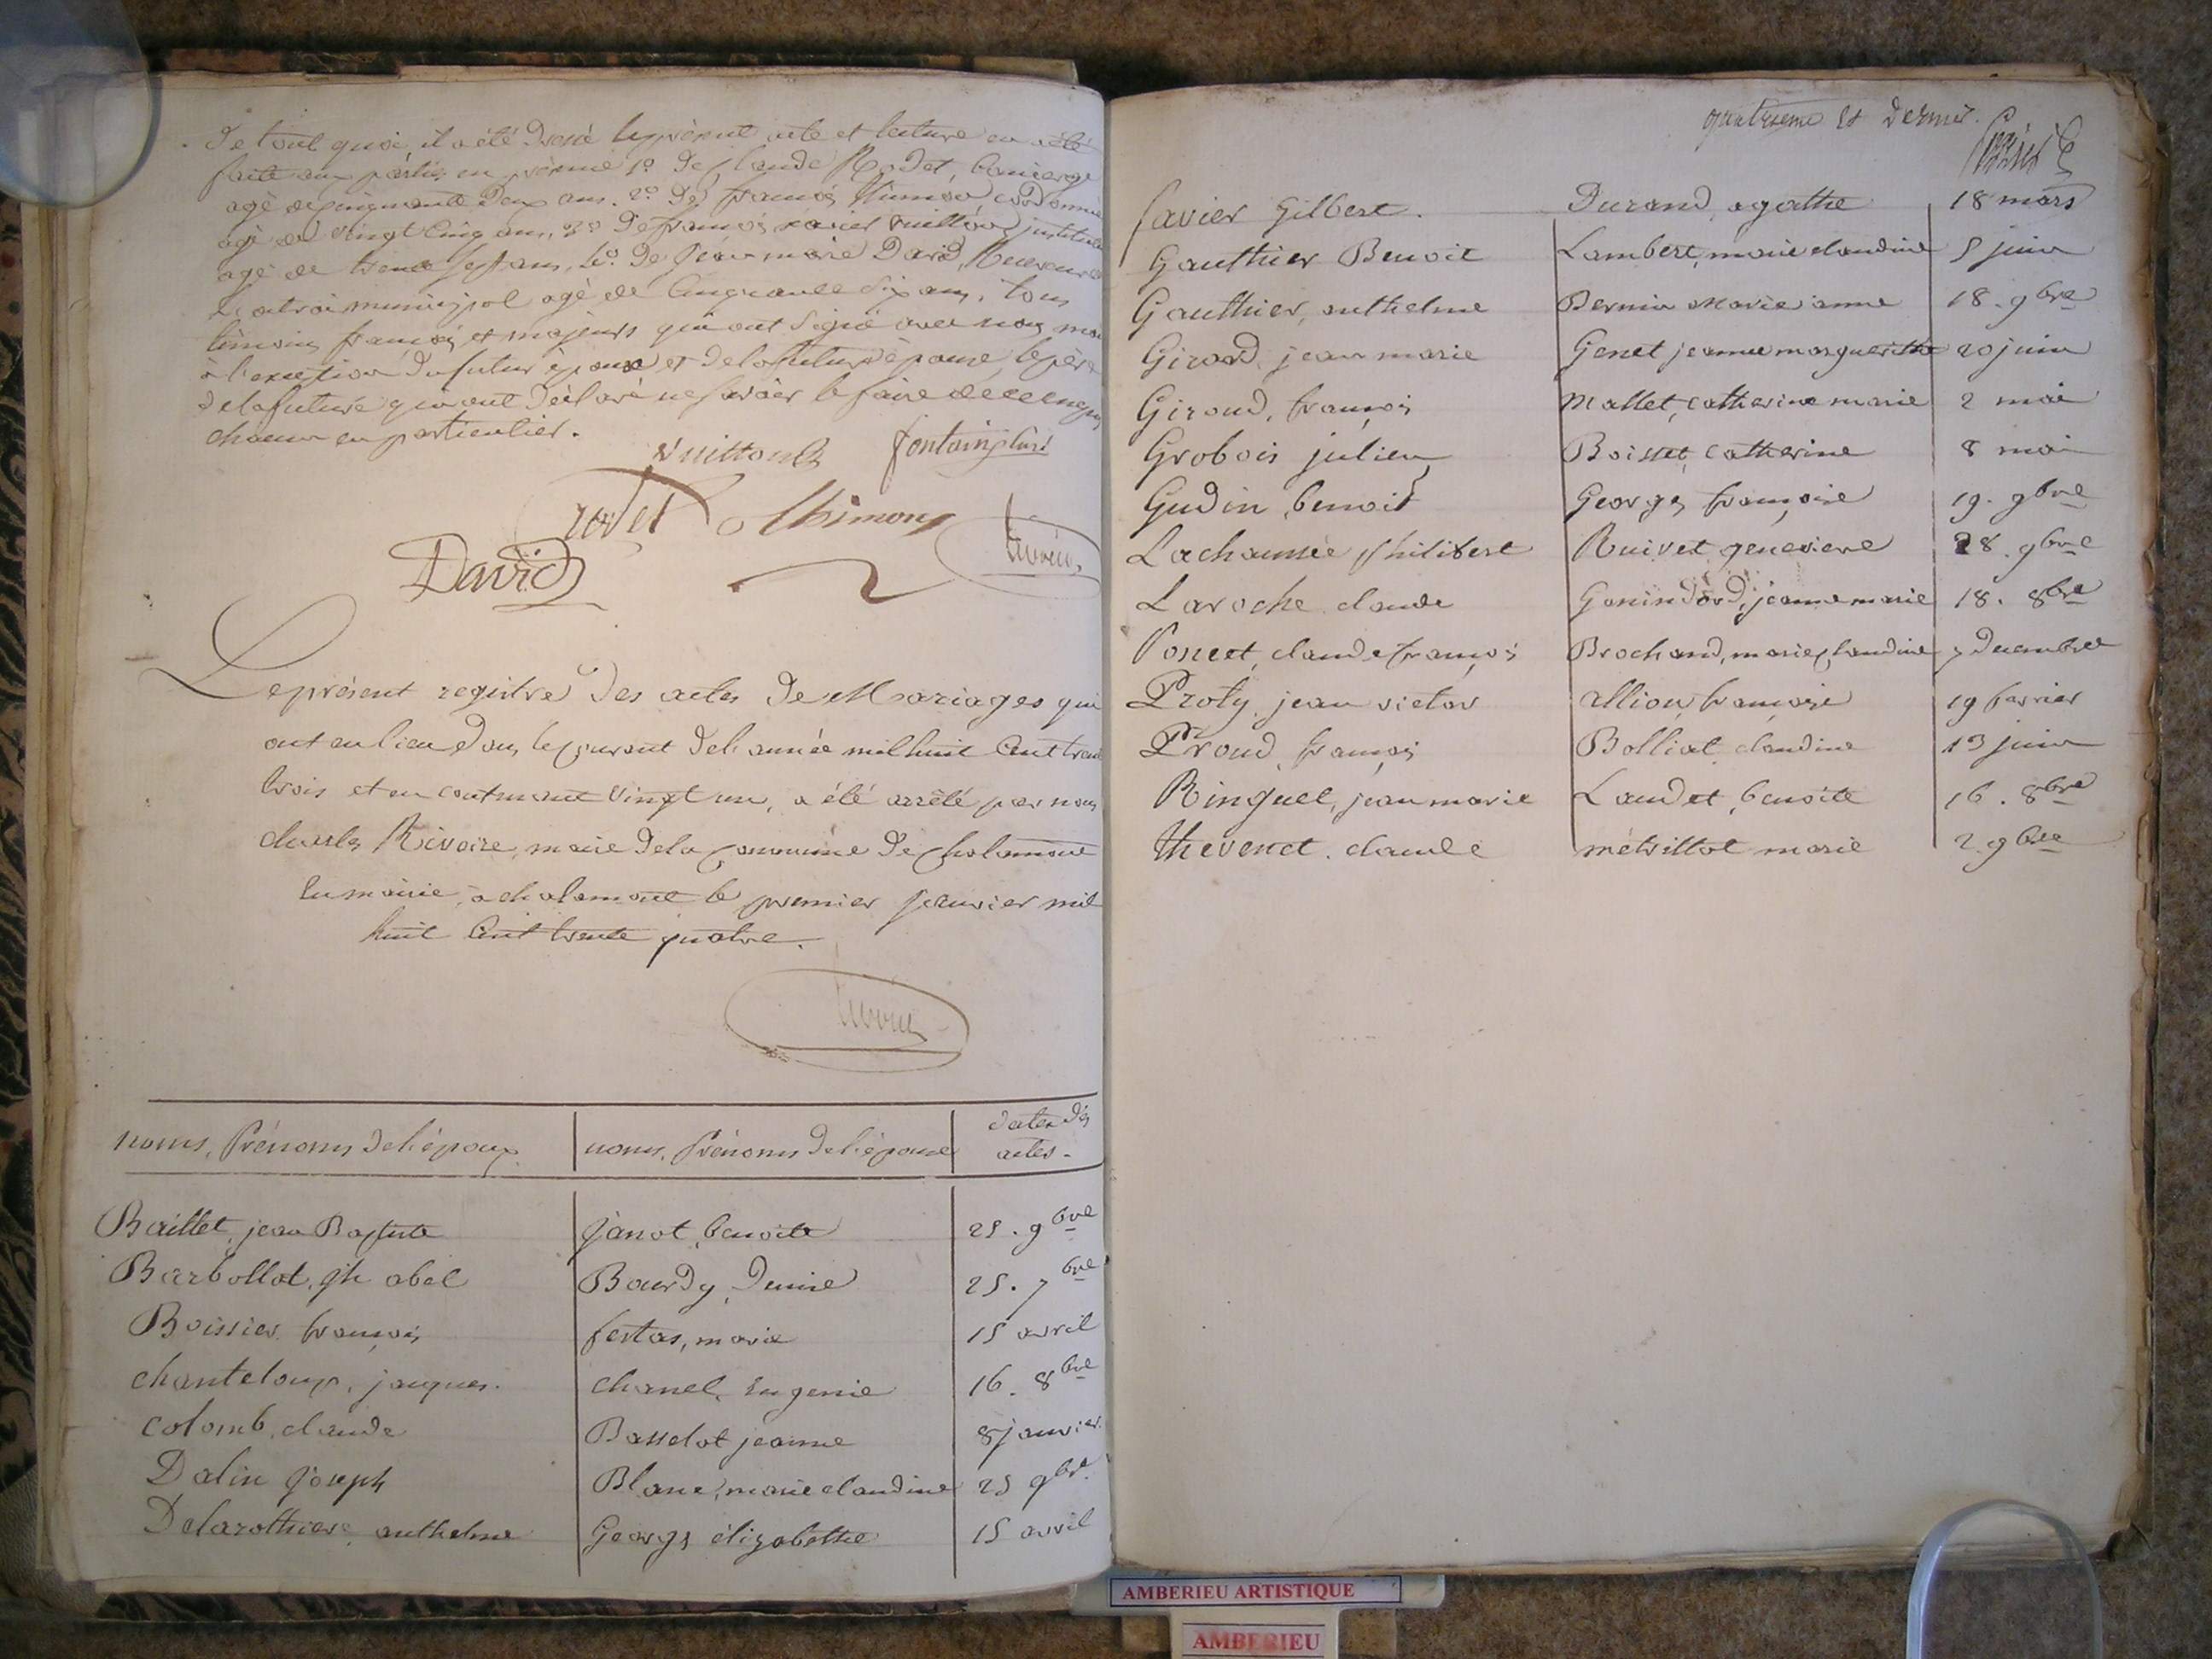 De tout quoi, il a été dressé le présent acte et lecture en a été
faite aux parties en présence 1º de Claude Rodet, Concierge
agé de cinquante deux ans. 2º de françois Thimon cordonnier
agé de vingt cinq ans, 3º de françois xavier Vuitton, instituteur
agé de trente sept ans, 4º de Jean marie David, Receveur
de l'octroi municipal agé de Cinquante six ans, tous
témoins français et majeurs qui ont signé avec nous maire
à l'exception du futur époux et de la future épouse, le père
de la future qui ont déclaré ne savoir le faire de ce enquis
chacun en particulier.
Vuitton fontaine
rodet Thimons
David
Le présent registre des actes de Mariages qui
ont eu lieu dans le courant de l'année mil huit Cent trente
trois et en contenant Vingt un, a été arrêté par nous
charles Rivoire, maire de la Commune de Chalamont
En mairie, à chalamont le premier Janvier mil
huit Cent trente quatre.
noms, Prénoms de l'époux noms, Prénoms de l'épouse dates des
actes.
Baillet, jean Baptiste Janot, benoite 25. 9bre
Barbollat, jh abel Bourdy, Denise 25. 7bre
Boissier françois festas, marie 15 avril
chanteloup, jacques. chanel, Eugenie 16. 8bre
colomb, claude Basselot jeanne 8 janvier.
Dalin Joseph Blanc, marie claudine 25 9bre.
Delarothiere, anthelme Georges élizabethe 15 avril
quatrieme et dernier.
favier Gilbert. Durand, agathe 18 mars
Gauthier Benoit Lambert, marie claudine 5 juin
Gauthier, anthelme Bernin Marie anne 18. 9bre
Girard, jean marie Genet jeanne margueritte 20 juin
Giroud, françois Mallet, Catherine marie 2 mai
Grobois julien Boisset, Catherine 8 mai
Gudin, benoit Georges françoise 19. 9bre
Lachaumée Philibert Ruivet genevieve 28. 9bre
Laroche, claude Gonindard, jeanne marie 18. 8bre
Poncet, claude françois Brochand, marie Claudine 7 Decembre
Proty, jean victor allion, françoise 19 fevrier
Proud, françois Bolliat, claudine 13 juin
Ringuet, jean marie Laudet, benoite 16. 8bre
thevenet, claude métrillot marie 2. 9bre
AMBERIEU ARTISTIQUE
AMBERIEU